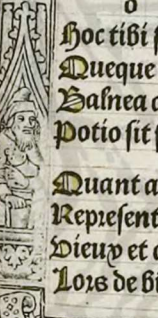 Hoc tibi
Queque
Balnea
Potio sit
Quant a
Represent
Dieux et
Lors de